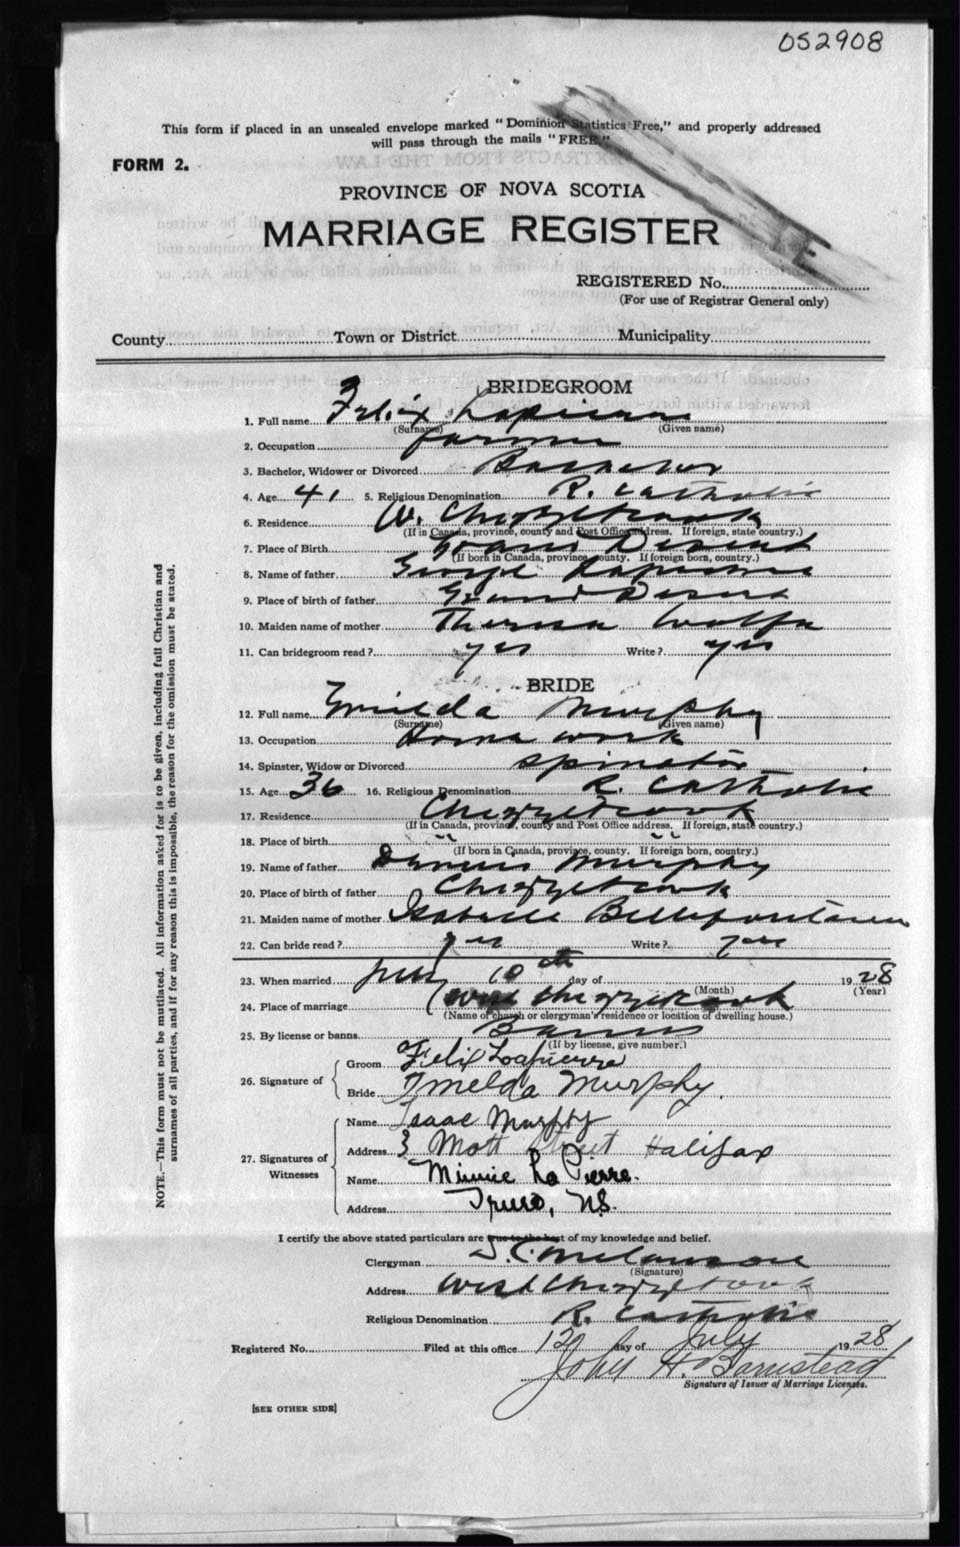 052908
This form if placed in an unsealed envelope marked "Dominion Statistics Free," and properly addressed
will pass through the mails "FREE"
FORM 2.
PROVINCE OF NOVA SCOTIA
MARRIAGE REGISTER
REGISTERED No.
(For use of Registrar General only)
County Town or District Municipality
BRIDEGROOM
1. Full name Felix Lapierre
(Surname) (Given name)
2. Occupation farmer
3. Bachelor, Widower or Divorced Bachelor
4. Age 41 5. Religious Denomination R. Catholic
6. Residence W. Chezzetcook
(If in Canada, province, county and Post Office address. If foreign, state country.)
7. Place of Birth Grand Desert
(If born in Canada, province, county. If foreign born, country.)
8. Name of father George Lapierre
9. Place of birth of father Grand Desert
10. Maiden name of mother Theresa Wolfe
11. Can bridegroom read? yes Write? yes
BRIDE
12. Full name Imelda Murphy
(Surname) (Given name)
13. Occupation Home work
14. Spinster, Widow or Divorced spinster
15. Age 36 16. Religious Denomination R. Catholic
17. Residence Chezzetcook
(If in Canada, province, county and Post Office address. If foreign, state country.)
18. Place of birth " "
(If born in Canada, province, county. If foreign born, country.)
19. Name of father Dennis Murphy
20. Place of birth of father Chezzetcook
21. Maiden name of mother Isabelle Bellefontaine
22. Can bride read? yes Write? yes
23. When married July 10th day of 1928
(Month) (Year)
24. Place of marriage West Chezzetcook
(Name of church or clergyman's residence or location of dwelling house.)
25. By license or banns Banns
(If by license, give number.)
26. Signature of Groom Felix LaPierre
Bride Imelda Murphy.
27. Signatures of Witnesses
Name Isaac Murphy
Address 3 Mott Street Halifax
Name Minnie La Pierre.
Address Truro, N.S.
I certify the above stated particulars are true to the best of my knowledge and belief.
Clergyman Melanson
(Signature)
Address West Chezzetcook
Religious Denomination R. Catholic
Registered No. Filed at this office 12 day of July 1928
John H. Barnstead
Signature of Issuer of Marriage Licenses.
[SEE OTHER SIDE]
NOTE.—This form must not be mutilated. All information asked for is to be given, including full Christian and
surnames of all parties, and if for any reason this is impossible, the reason for the omission must be stated.